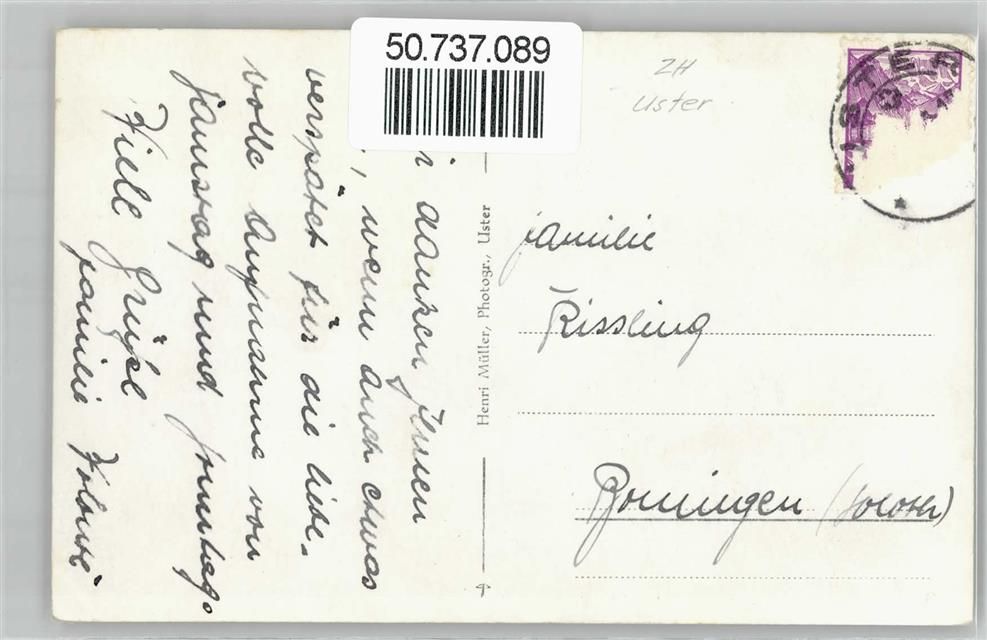 50.737.089
ZH
Uster
USTER
danken Ihnen
, wenn auch etwas
verspätet für die liebe-
volle Aufnahme von
Samstag und Sonntag.
Viele Grüße
Familie
Henri Müller, Photogr., Uster
Familie
Kissling
Boningen (Soloth)